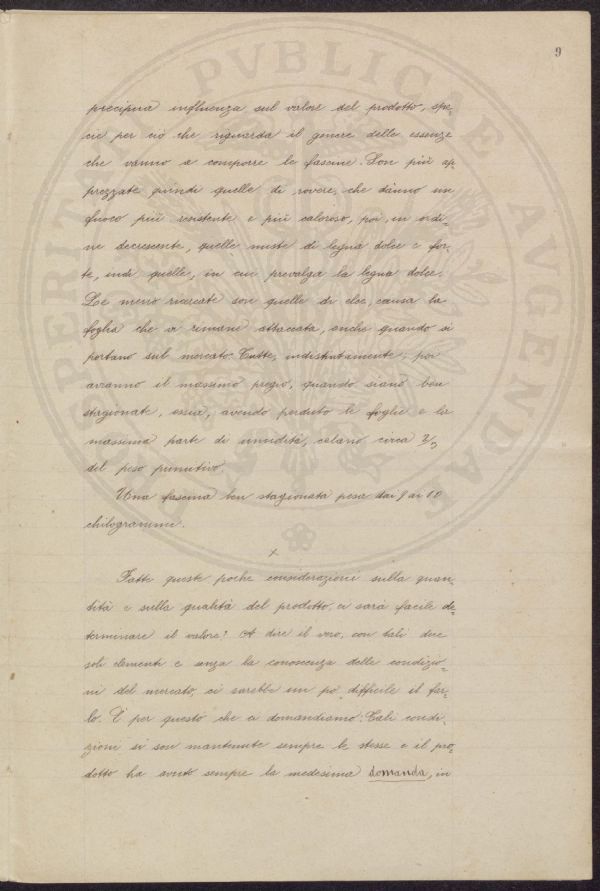 9
precipua influenza sul valore del prodotto, spe-
cie per ciò che riguarda il genere delle essenze
che vanno a comporre le fascine. Son più ap-
prezzate quindi quelle di rovere, che dànno un
fuoco più resistente e più caloroso, poi, in ordi-
ne decrescente, quelle miste di legna dolce e for-
te, indi quelle, in cui prevalga la legna dolce.
Le meno ricercate son quelle di elce, causa la
foglia che vi rimane attaccata, anche quando si
portano sul mercato. Tutte, indistintamente, poi
avranno il massimo pregio, quando siano ben
stagionate, ossia, avendo perduto le foglie e la
massima parte di umidità, calano circa 2/3
del peso primitivo.
Una fascina ben stagionata pesa dai 9 ai 10
chilogrammi.
x
Fatte queste poche considerazioni sulla quan-
tità e sulla qualità del prodotto, ci sarà facile de-
terminare il valore? A dire il vero, con tali due
soli elementi e senza la conoscenza delle condizio-
ni del mercato, ci sarebbe un po' difficile il far-
lo. È per questo che ci domandiamo: Tali condi-
zioni si son mantenute sempre le stesse e il pro-
dotto ha avuto sempre la medesima domanda, in
PVBLICAE AVGENDAE
PROSPERITATI